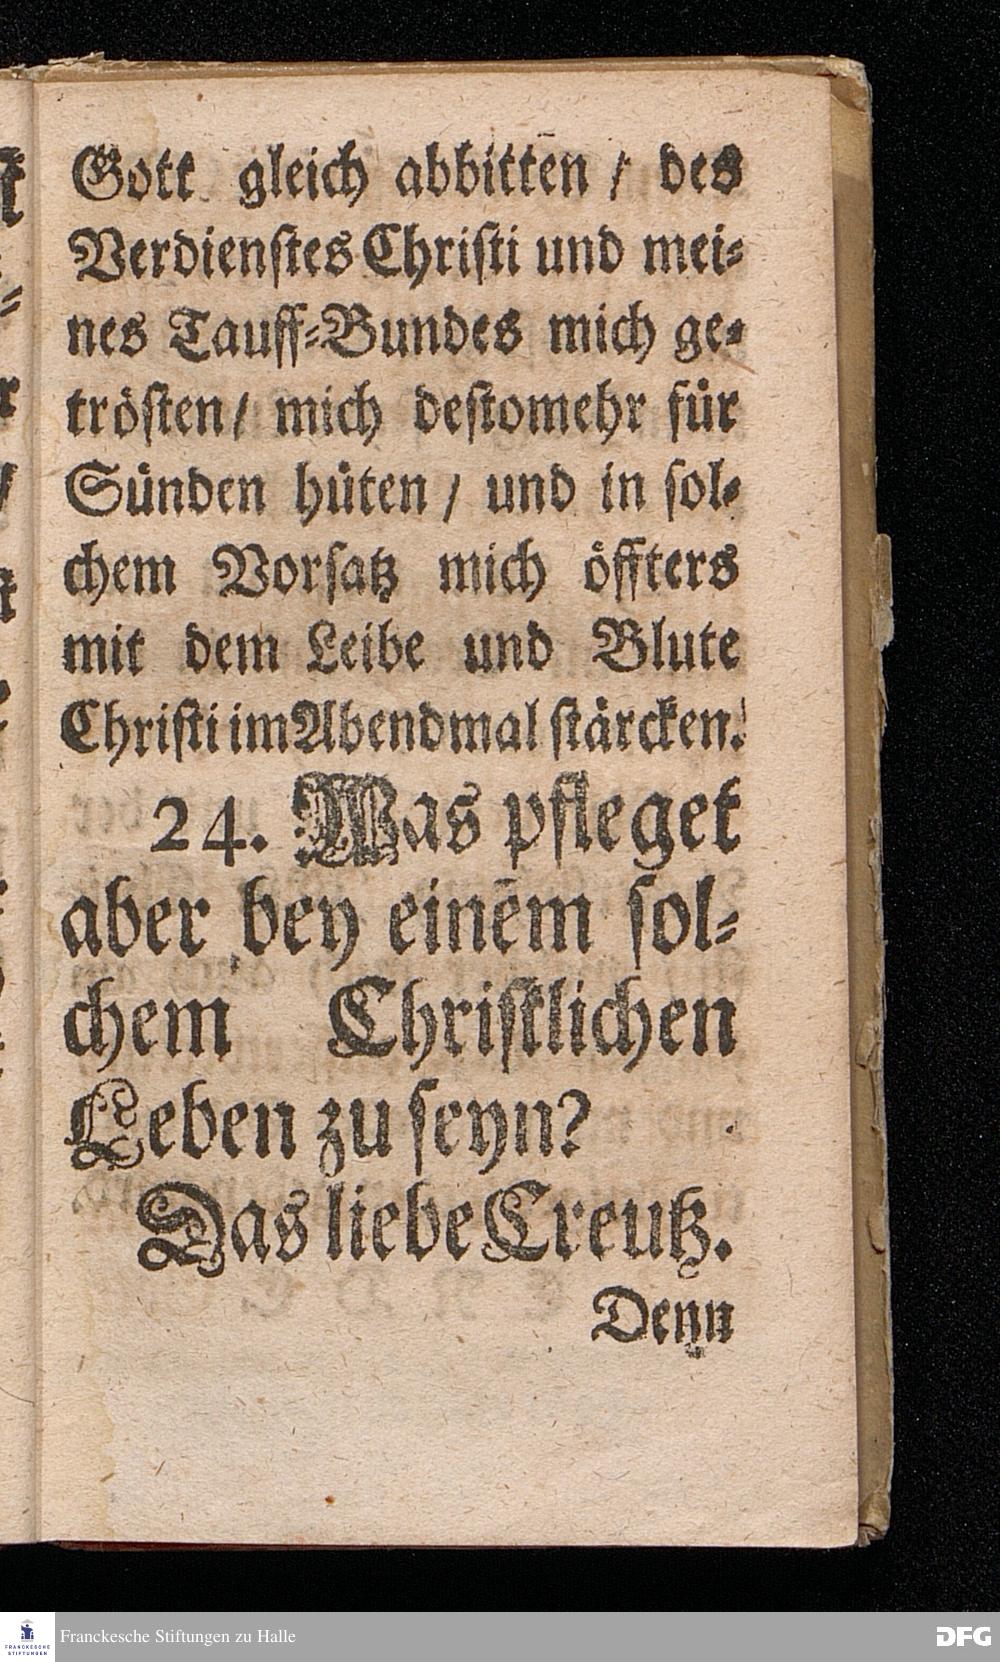 Gott gleich abbitten / des
Verdienſtes Chriſti und mei⸗
nes Tauff⸗Bundes mich ge⸗
tröſten / mich deſtomehr für
Sünden hüten / und in ſol⸗
chem Vorſatz mich öffters
mit dem Leibe und Blute
Chriſti im Abendmal ſtärcken.
24. Was pfleget
aber bey einem ſol⸗
chem Chriſtlichen
Leben zu ſeyn?
Das liebe Creutz.
Denn
Franckesche Stiftungen zu Halle
FRANCKESCHE
STIFTUNGEN
DFG